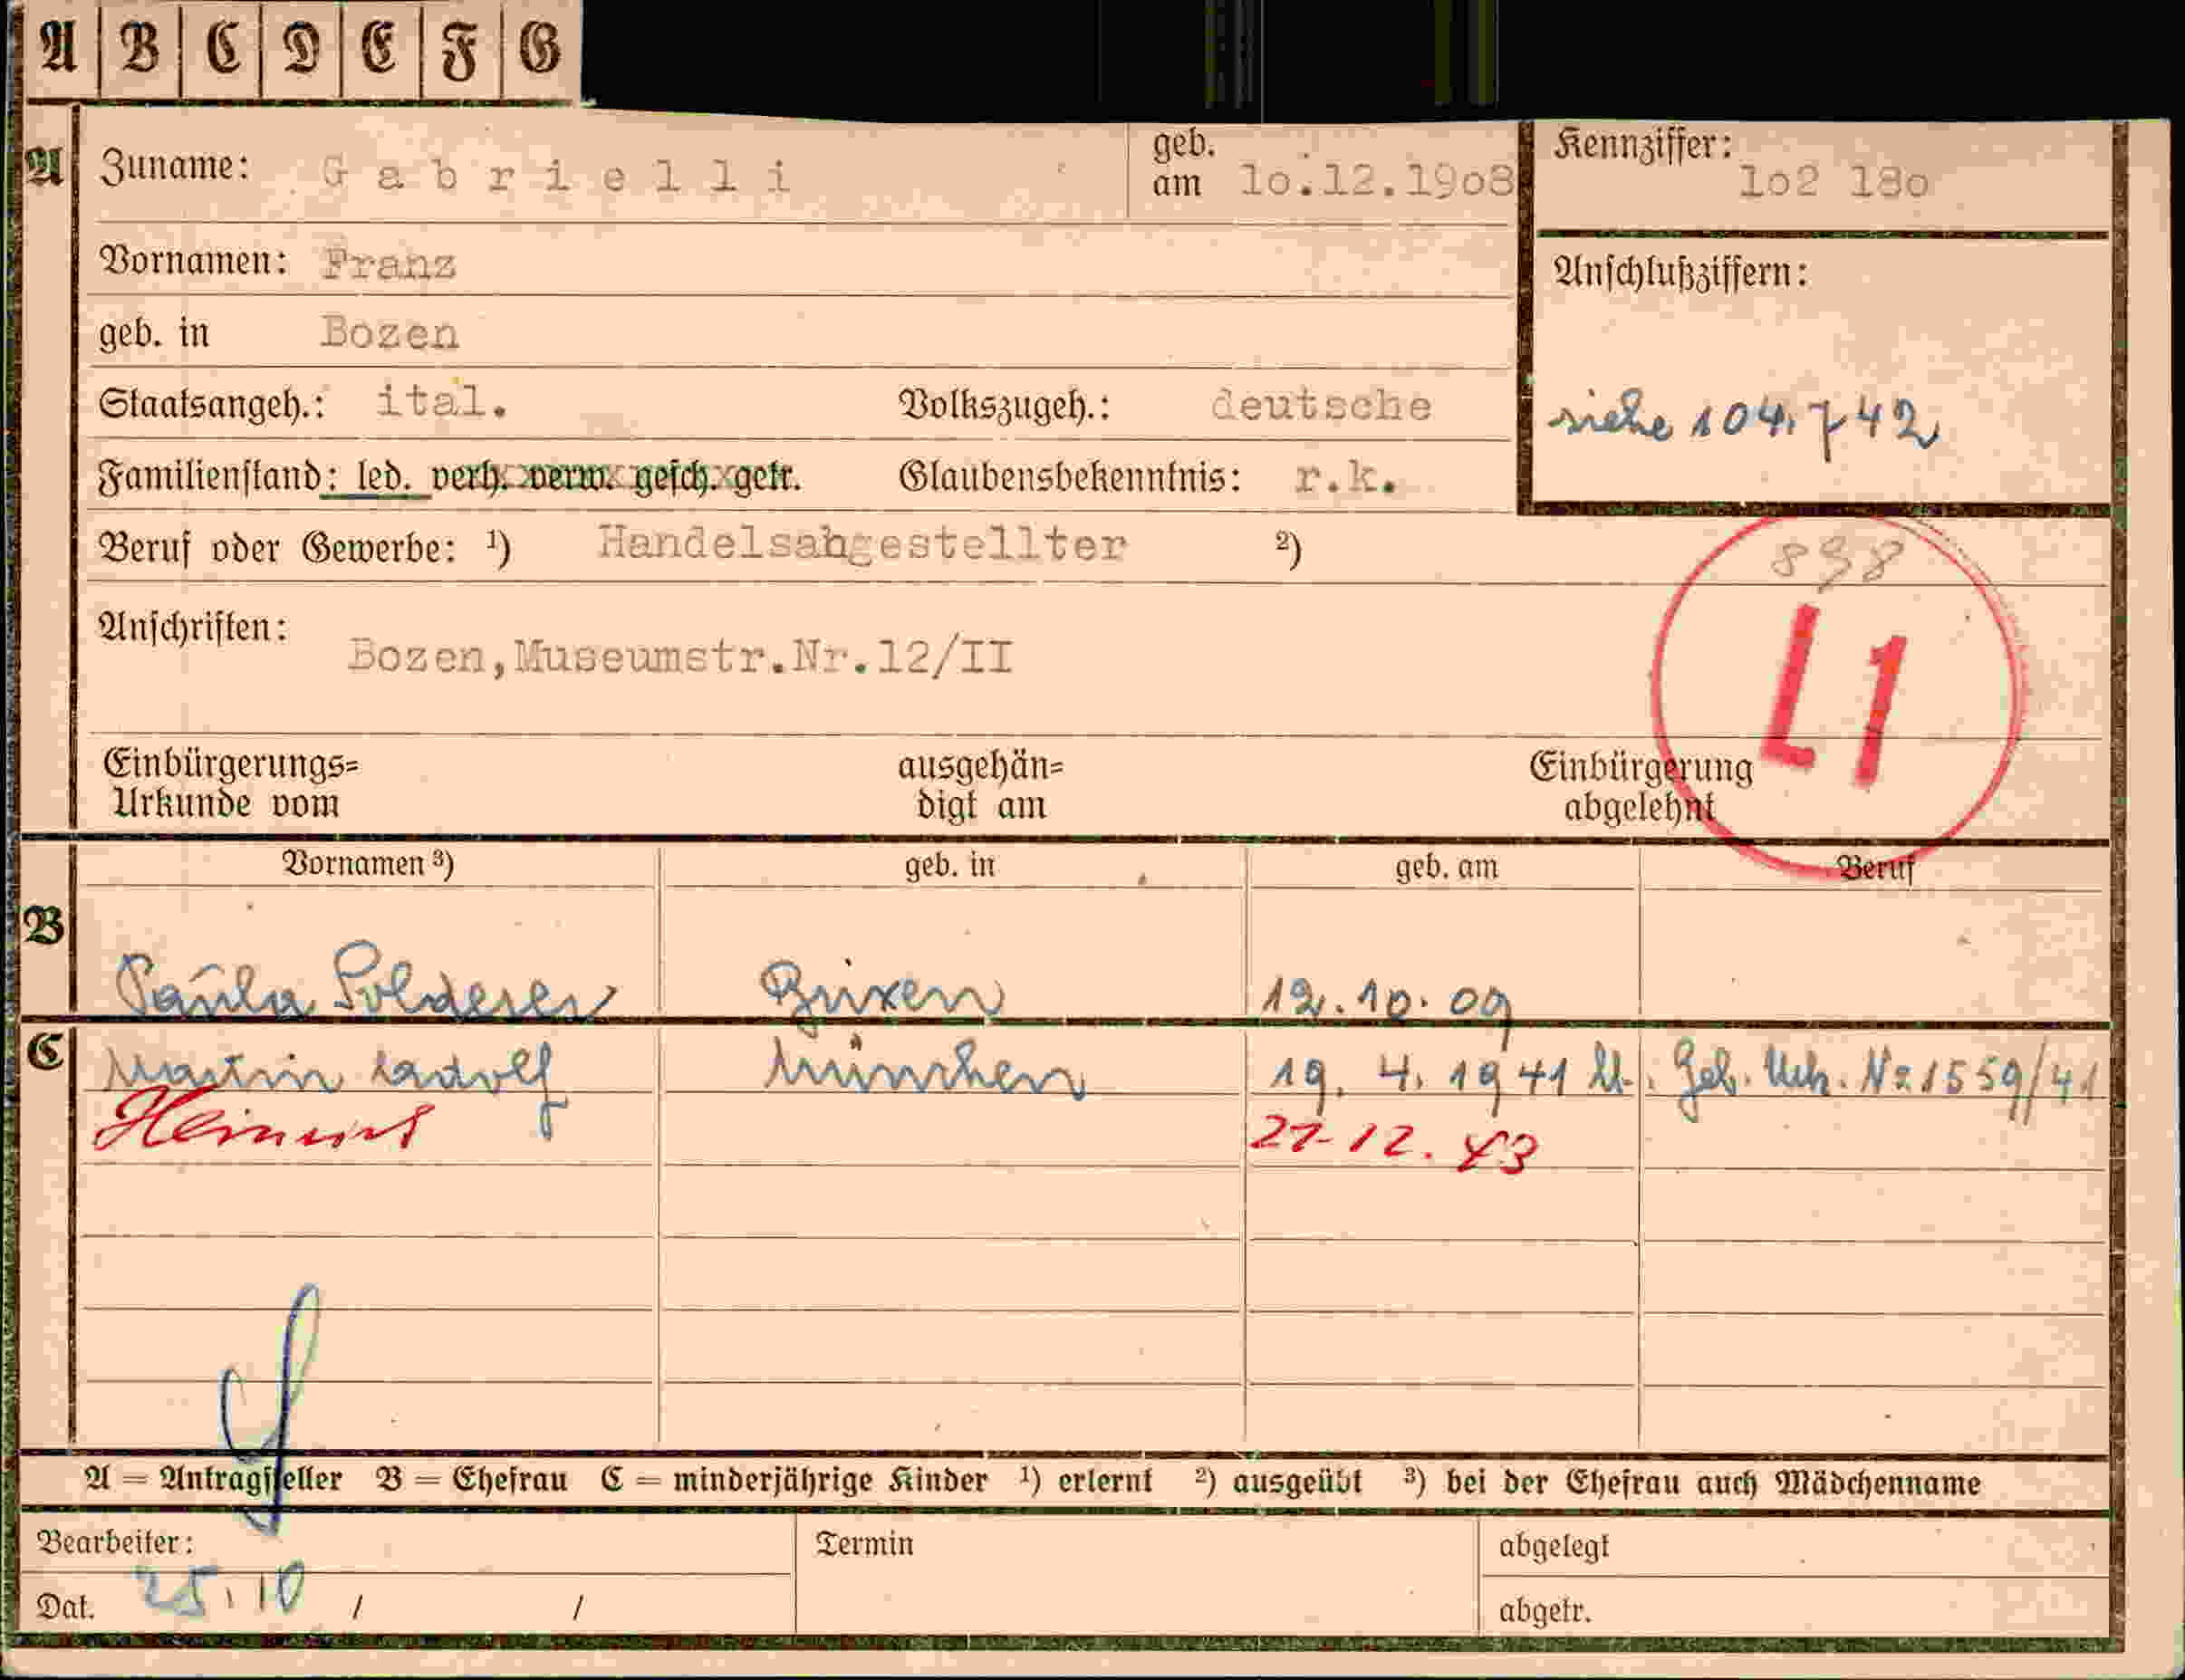 A B C D E F G
A Zuname: Gabrielli geb. am 10.12.1908 Kennziffer: 102 180
Vornamen: Franz
Anschlußziffern:
geb. in Bozen
Staatsangeh.: ital. Volkszugeh.: deutsche
siehe 104.742
Familienstand: led. verh. verw. gesch. getr. Glaubensbekenntnis: r.k.
Beruf oder Gewerbe: ¹) Handelsahgestellter ²)
898
Anschriften: Bozen,Museumstr.Nr.12/II
L1
Einbürgerungs= ausgehän= Einbürgerung
Urkunde vom digt am abgelehnt
Vornamen ³) geb. in geb. am Beruf
B
Paula Polderer Brixen 12.10.09
C Martin Ladolf München 19. 4. 1941 Geb. Urk. No 1559/41
21.12.43
A = Antragsteller B = Ehefrau C = minderjährige Kinder ¹) erlernt ²) ausgeübt ³) bei der Ehefrau auch Mädchenname
Bearbeiter: Termin abgelegt
Dat. 25.10 / / abgetr.